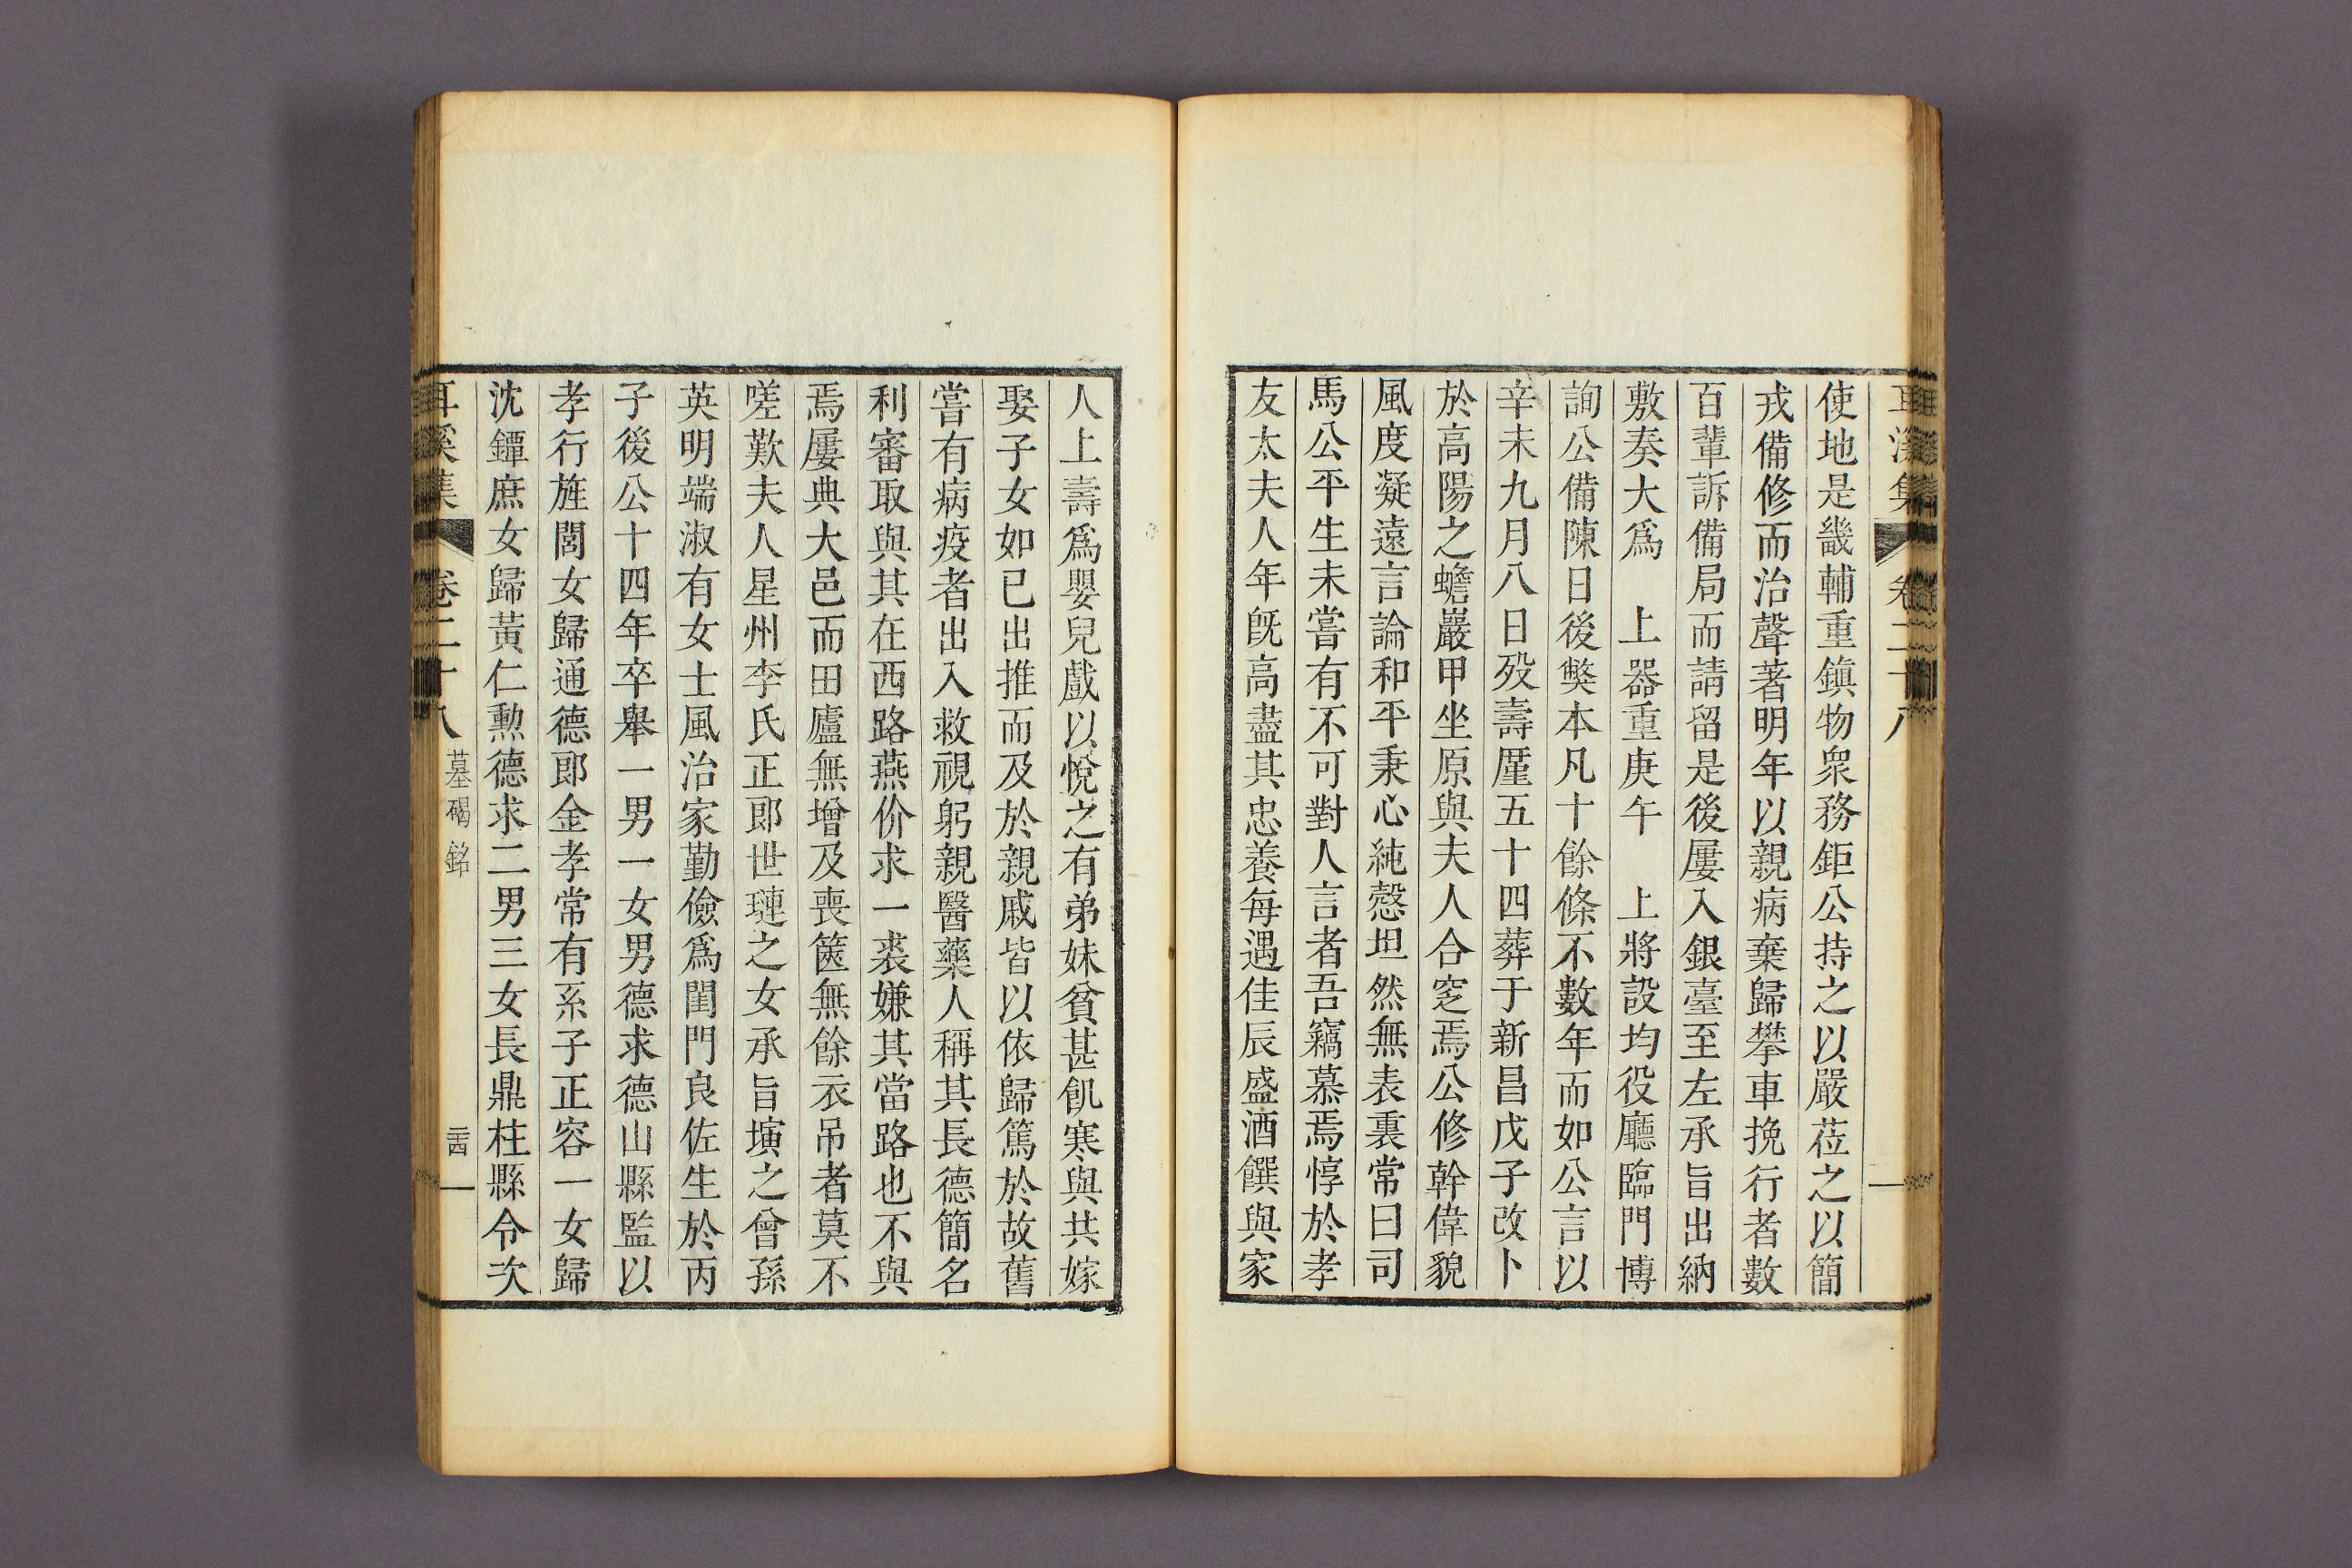 耳溪集 卷二十八
使地是畿輔重鎮物衆務鉅公持之以嚴莅之以簡
戎備修而治聲著明年以親病棄歸攀車挽行者數
百輩訴備局而請留是後屢入銀臺至左承旨出納
敷奏大爲 上器重庚午 上將設均役廳臨門博
詢公備陳日後獘本凡十餘條不數年而如公言以
辛未九月八日歿壽厪五十四葬于新昌戊子改卜
於高陽之蟾巖甲坐原與夫人合窆焉公修幹偉貌
風度凝遠言論和平秉心純慤坦然無表裏常曰司
馬公平生未嘗有不可對人言者吾竊慕焉惇於孝
友太夫人年旣高盡其忠養每遇佳辰盛酒饌與家
人上壽爲嬰兒戲以悅之有弟妹貧甚飢寒與共嫁
娶子女如已出推而及於親戚皆以依歸篤於故舊
嘗有病疫者出入救視躬親醫藥人稱其長德簡名
利審取與其在西路燕价求一裘嫌其當路也不與
焉屢典大邑而田廬無增及喪篋無餘衣吊者莫不
嗟歎夫人星州李氏正郞世璉之女承旨塡之曾孫
英明端淑有女士風治家勤儉爲閨門良佐生於丙
子後公十四年卒舉一男一女男德求德山縣監以
孝行旌閭女歸通德郞金孝常有系子正容一女歸
沈鐔庶女歸黃仁勲德求二男三女長鼎柱縣令次
耳溪集 卷二十八 墓碣銘 二十四